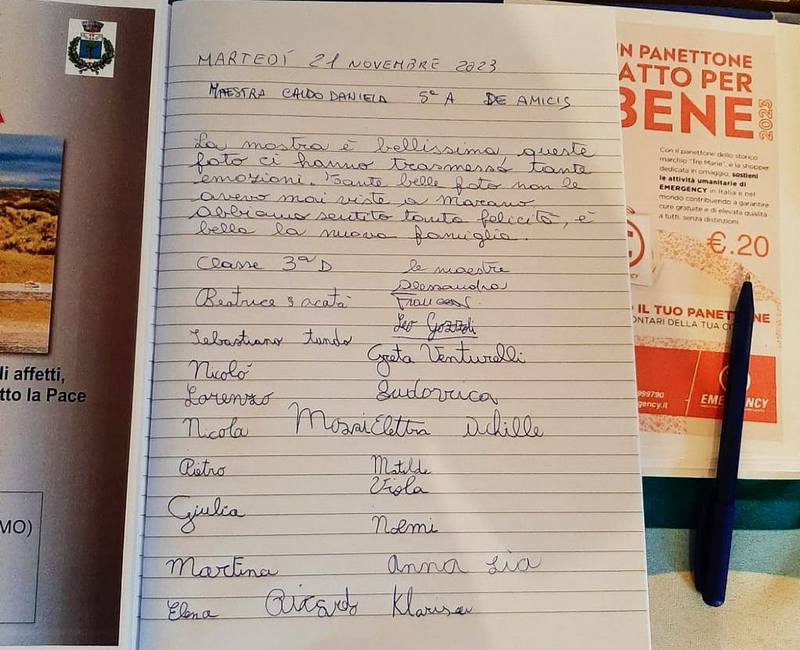 MARTEDÍ 21 NOVEMBRE 2023
MAESTRA CALDO DANIELA 5ª A DE AMICIS
La mostra è bellissima, queste
foto ci hanno trasmesso tante
emozioni. Tante belle foto non le
avevo mai viste a Marano.
Abbiamo sentito tanta felicità, è
bella la nuova famiglia.
Classe 3ª D le maestre
Alessandra
Beatrice
Leo Gozzoli
Sebastiano tondo
Greta Venturelli
Nicoló
Lorenzo Ludovica
Nicola Elettra Achille
Pietro Matilde
Viola
Giulia
Noemi
Martina Anna Lia
Elena Riccardo Klarisa
li affetti,
tto la Pace
MO)
UN PANETTONE
ATTO PER
BENE 2023
Con il panettone dello storico
marchio "Tre Marie", e la shopper
dedicata in omaggio, sostieni
le attività umanitarie di
EMERGENCY in Italia e nel
mondo contribuendo a garantire
cure gratuite e di elevata qualità
a tutti, senza distinzioni.
€.20
IL TUO PANETTONE
ONTARI DELLA TUA
999790
ergency.it
EMERGENCY